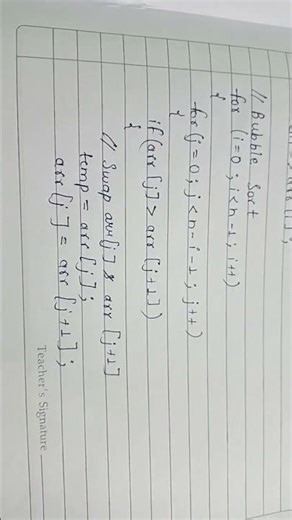 // Bubble Sort
for (i=0; i<n-1; i++)
{
for (j=0; j<n-i-1; j++)
{
if (arr[j] > arr[j+1])
{
// Swap arr[j] & arr[j+1]
temp = arr[j];
arr[j] = arr[j+1];
Teacher's Signature